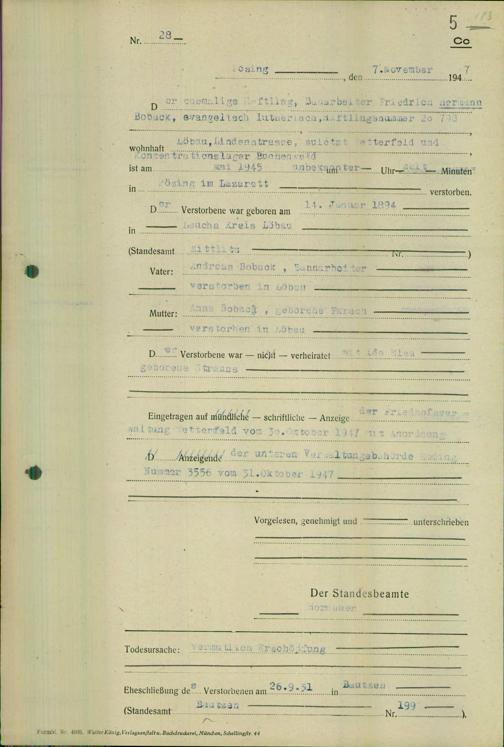 5 113
Co
Nr. 28
Pösing, den 7.November 1947
Der ehemalige Häftling, Bauarbeiter Friedrich Hermann
Boback, evangelisch lutherisch, Häftlingsnummer 20
wohnhaft Löbau, Lindenstrasse, zuletzt Wetterfeld und
Konzentrationslager Buchenwald
ist am Mai 1945 unbekannter um Uhr Minuten
in Pösing im Lazarett verstorben.
Der Verstorbene war geboren am 14. Januar 1894
in Laucha Kreis Löbau
(Standesamt Kittlitz Nr. )
Vater: Andreas Boback, Bauarbeiter
verstorben in Löbau
Mutter: Anna Boback, geborene
verstorben in Löbau
Der Verstorbene war — nicht — verheiratet mit Ida
geborene Strauss
Eingetragen auf mündliche — schriftliche — Anzeige der Friedhofsver
waltung Wetterfeld vom 30.Oktober 1947 mit Anordnung
D Anzeigende der unteren Verwaltungsbehörde Roding
Nummer 3556 vom 31.Oktober 1947
Vorgelesen, genehmigt und unterschrieben
Der Standesbeamte
Todesursache: vermutlich Erschöpfung
Eheschließung des Verstorbenen am 26.9.31 in Bautzen
(Standesamt Bautzen Nr. 199 ).
Formbl. Nr. 4000. Walter König, Verlagsanstalt u. Buchdruckerei, München, Schellingstr. 44